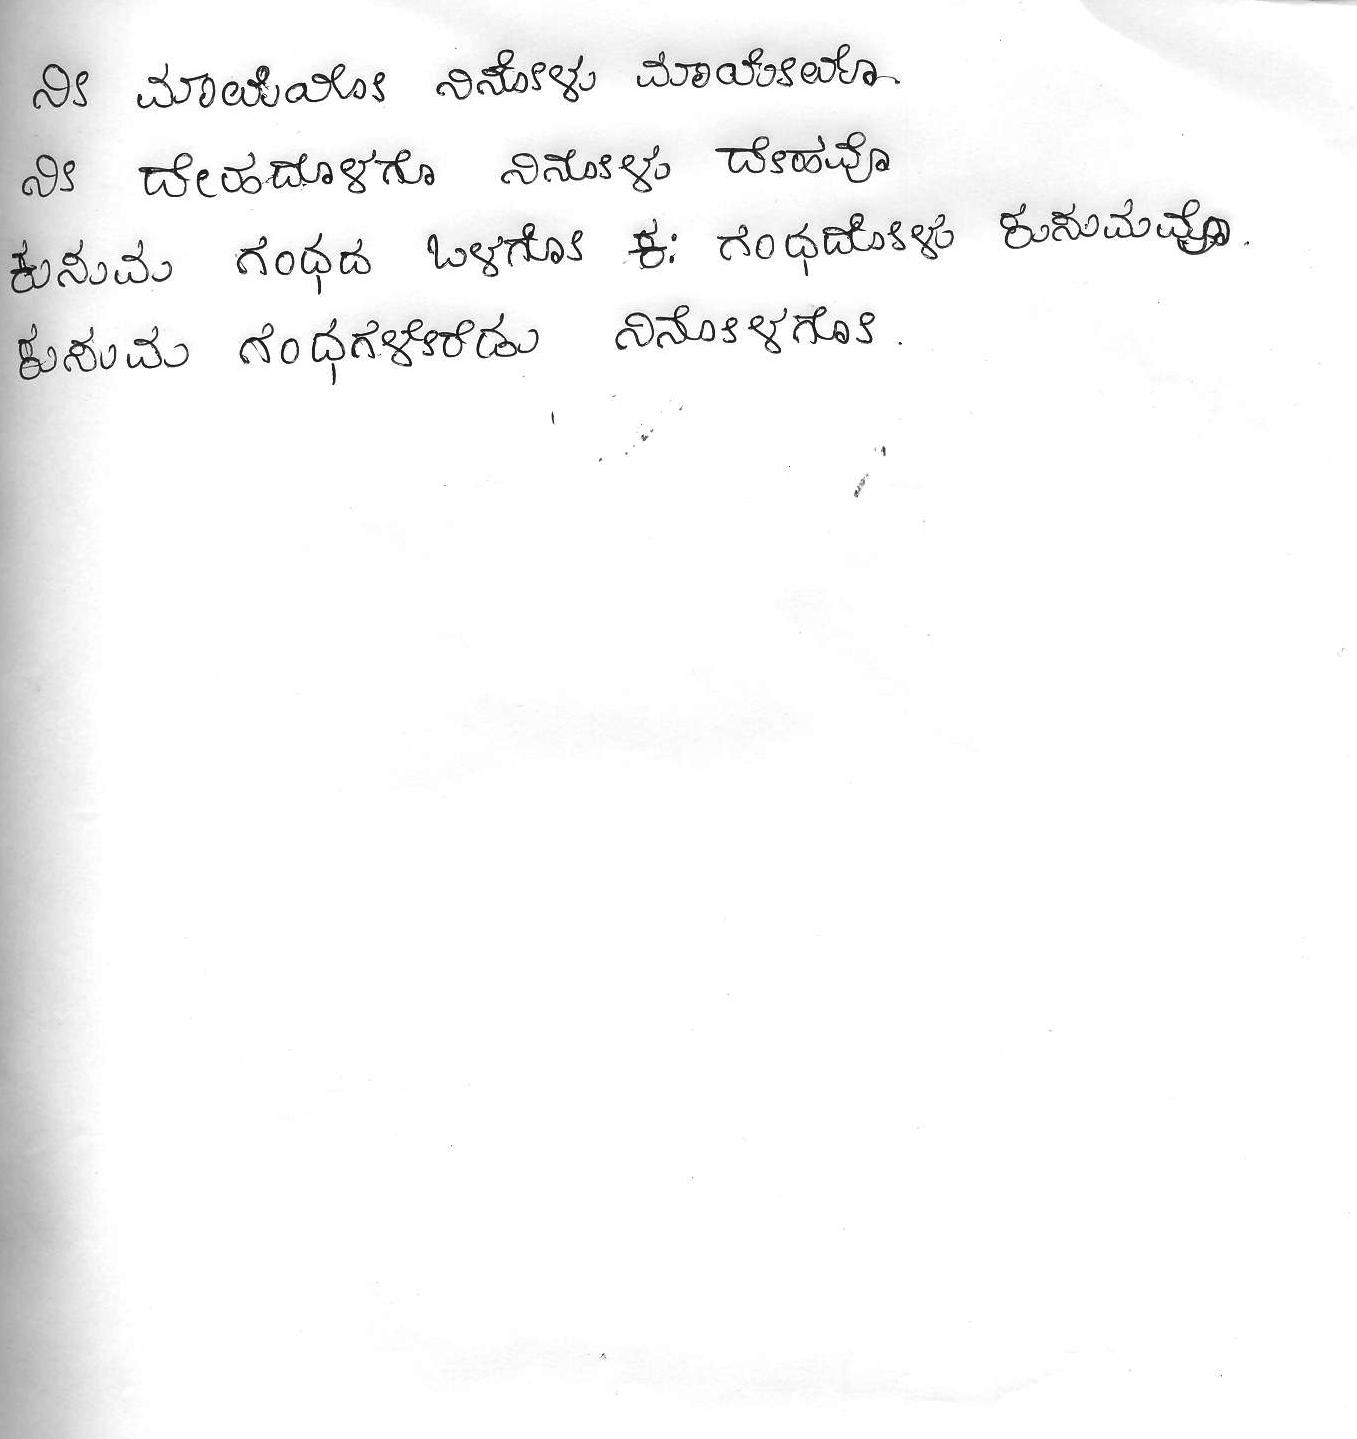 ನೀ ಮಾಯೆಯೋ ನಿನೋಳು ಮಾಯೇಯೊ
ನೀ ದೇಹದೊಳಗೊ ನಿನೋಳು ದೇಹವೊ
ಕುಸುಮ ಗಂಧದ ಒಳಗೋ ಕ: ಗಂಧದೋಳು ಕುಸುಮವೊ.
ಕುಸುಮ ಗಂಧಗಳೇರೆಡು ನಿನೋಳಗೋ.